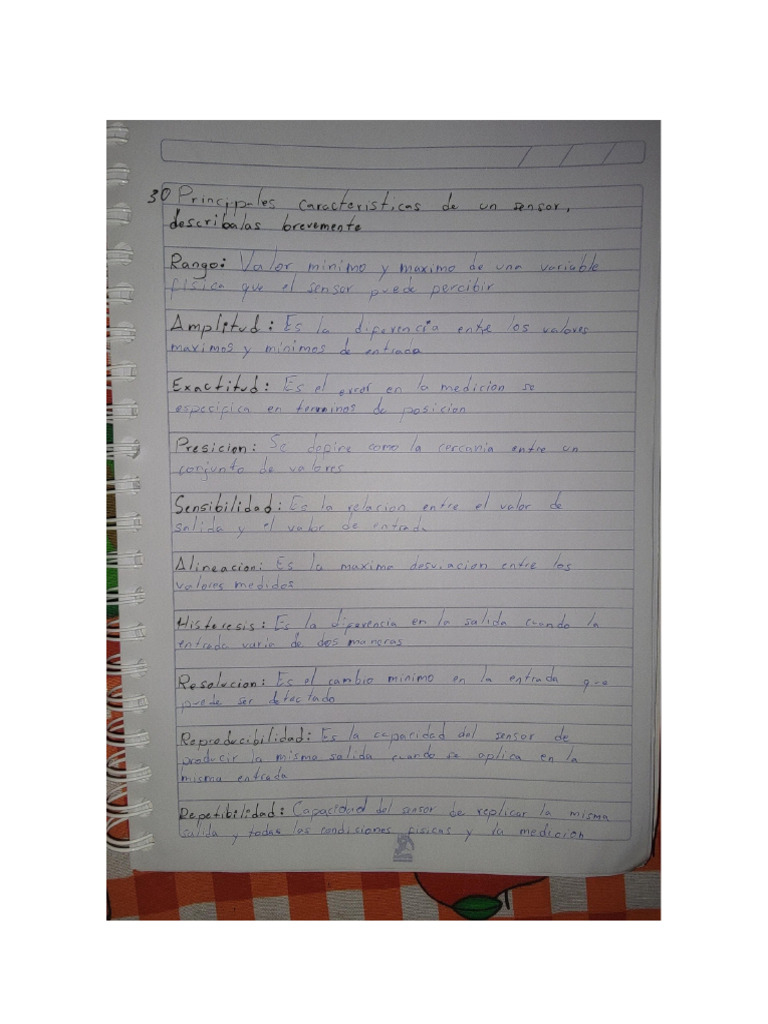 30 Princppales caracteristicas de un sensor,
describalas brevemente
Rango: Valor minimo y maximo de una variable
fisica que el sensor puede percibir
Amplitud: Es la diferencia entre los valores
maximos y minimos de entrada
Exactitud: Es el error en la medicion se
especifica en terminos de posicion
Presicion: Se define como la cercania entre un
conjunto de valores
Sensibilidad: Es la relacion entre el valor de
salida y el valor de entrada
Alineacion: Es la maxima desviacion entre los
valores medidos
Histeresis: Es la diferencia en la salida cuando la
entrada varia de dos maneras
Resolucion: Es el cambio minimo en la entrada que
puede ser detectado
Reproducibilidad: Es la capacidad del sensor de
producir la misma salida cuando se aplica en la
misma entrada
Repetibilidad: Capacidad del sensor de replicar la misma
salida y todas las condisiones fisicas y la medicion